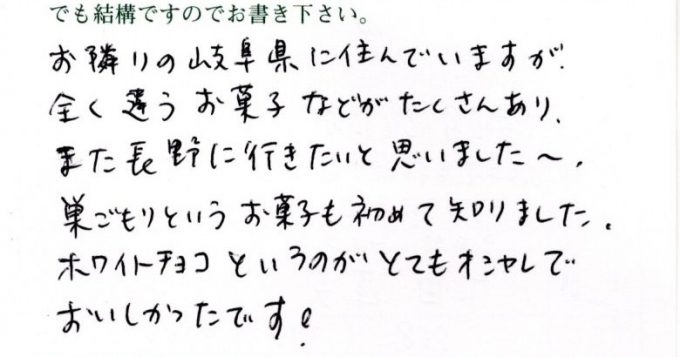 でも結構ですのでお書き下さい。
お隣りの岐阜県に住んでいますが、
全く違うお菓子などがたくさんあり、
また長野に行きたいと思いました〜。
巣ごもりというお菓子も初めて知りました。
ホワイトチョコというのがとてもオシャレで
おいしかったです!